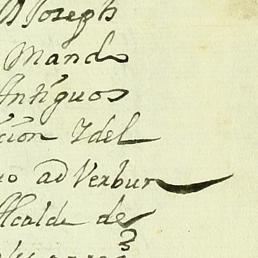 Joseph
Mando
Antiguos
cion Ydel
ad Verbun
Alcalde de